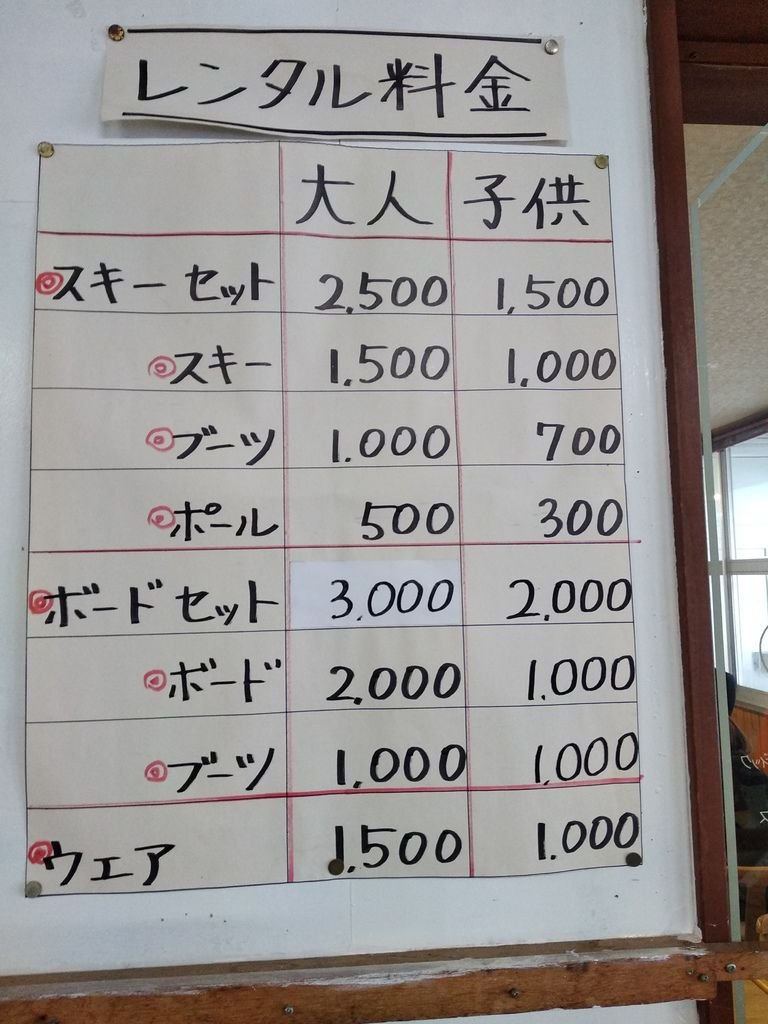 レンタル料金
大人 子供
◎スキーセット 2,500 1,500
◎スキー 1,500 1,000
◎ブーツ 1,000 700
◎ポール 500 300
◎ボードセット 3,000 2,000
◎ボード 2,000 1,000
◎ブーツ 1,000 1,000
◎ウェア 1,500 1,000